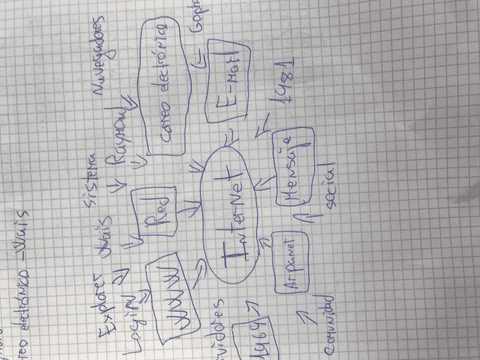 reo electrónico - Wais
Explorer Wais Sistema Navegadores
Login Raymond
WWW Red Correo electrónico
Goph
vidores
Internet E-mail
1969 Arpanet Mensaje 1981
comunidad social